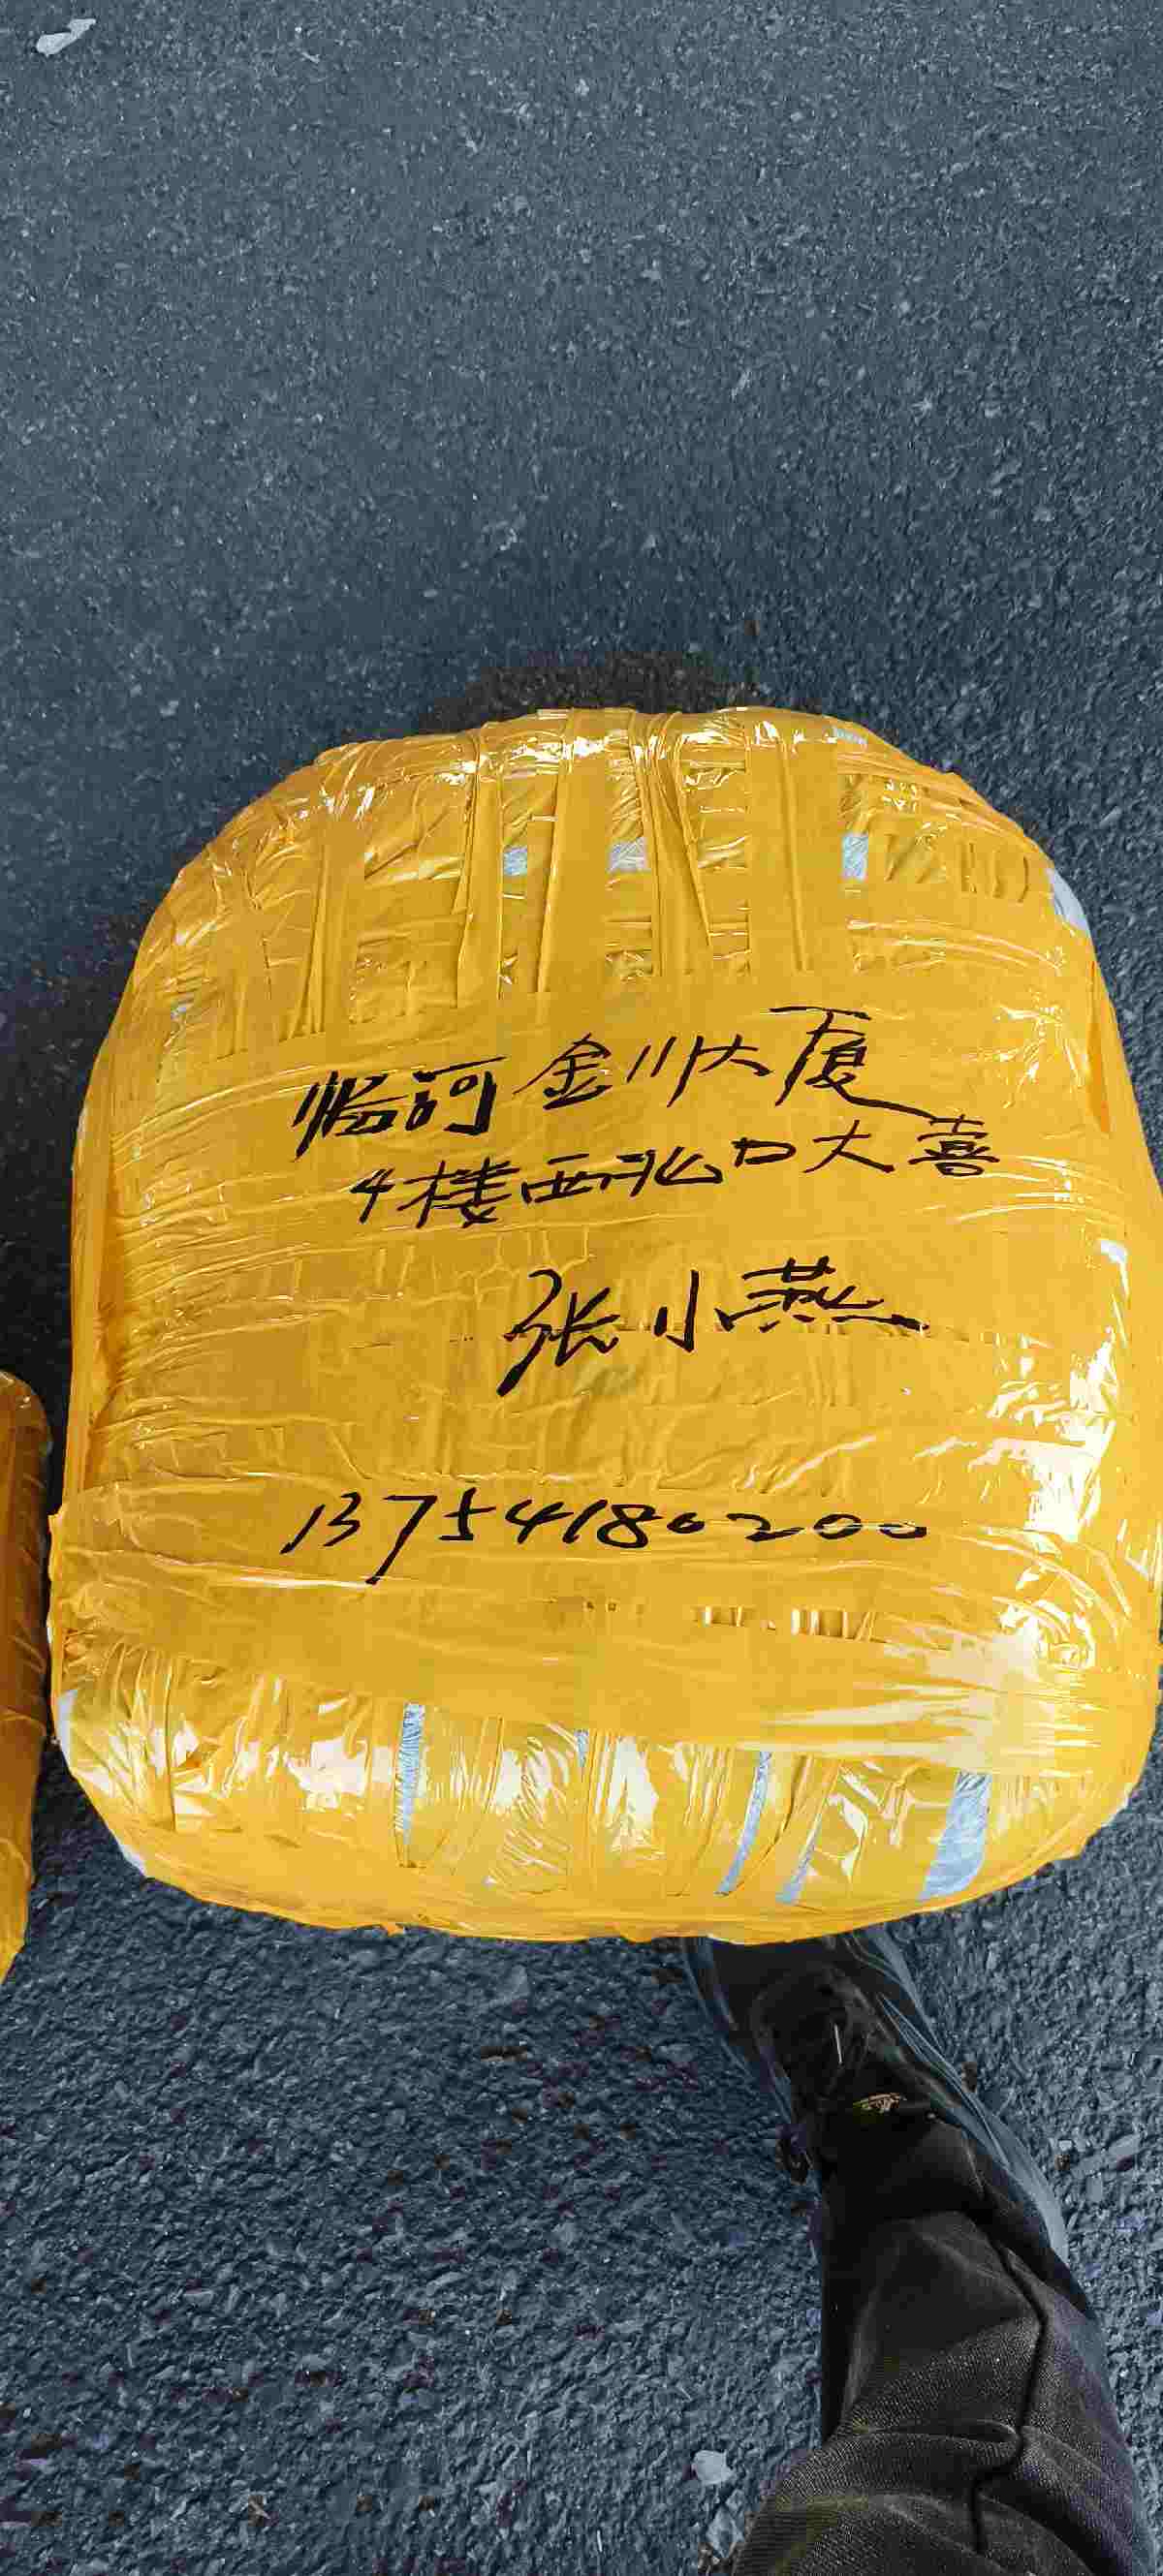 临河金川大厦
4楼西北口大喜
张小燕
13754180200